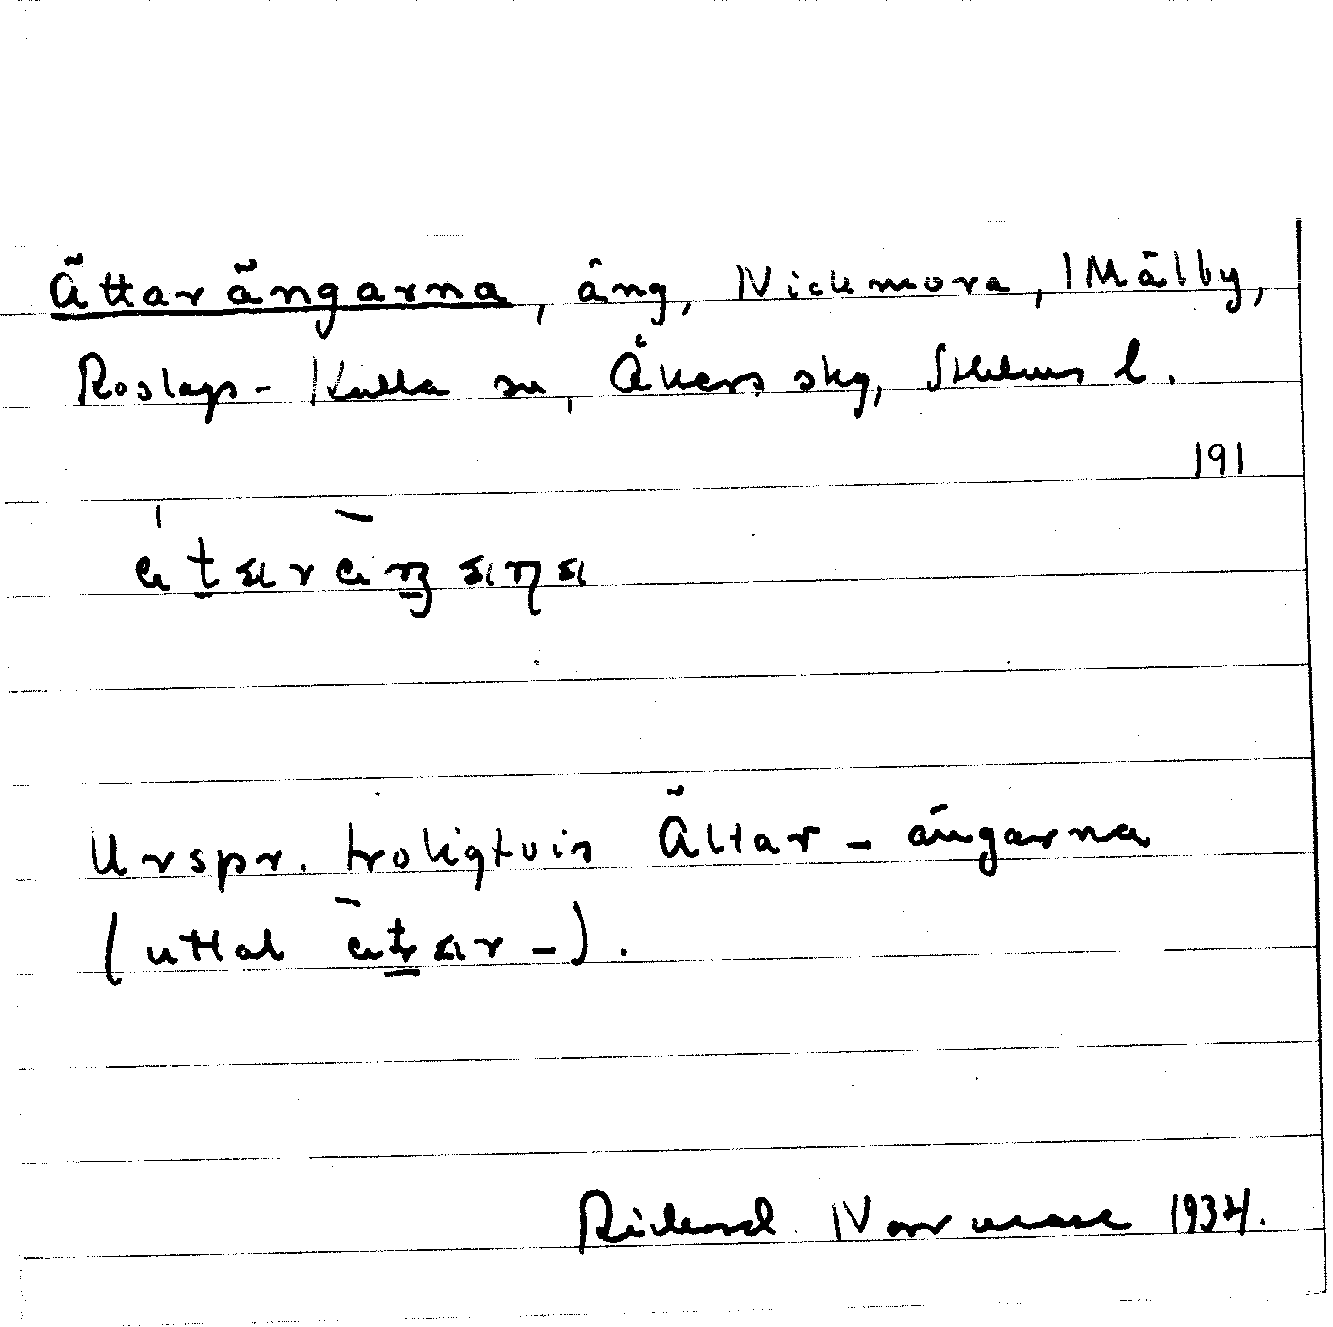 Ättarängarna, äng, Nickmora, Målby,
Roslags-Kulla sn, Åkers skg, Sthlms l.
191
Urspr. troligtvis Ältar-ängarna
(uttal
Rickard Norrman 1934.